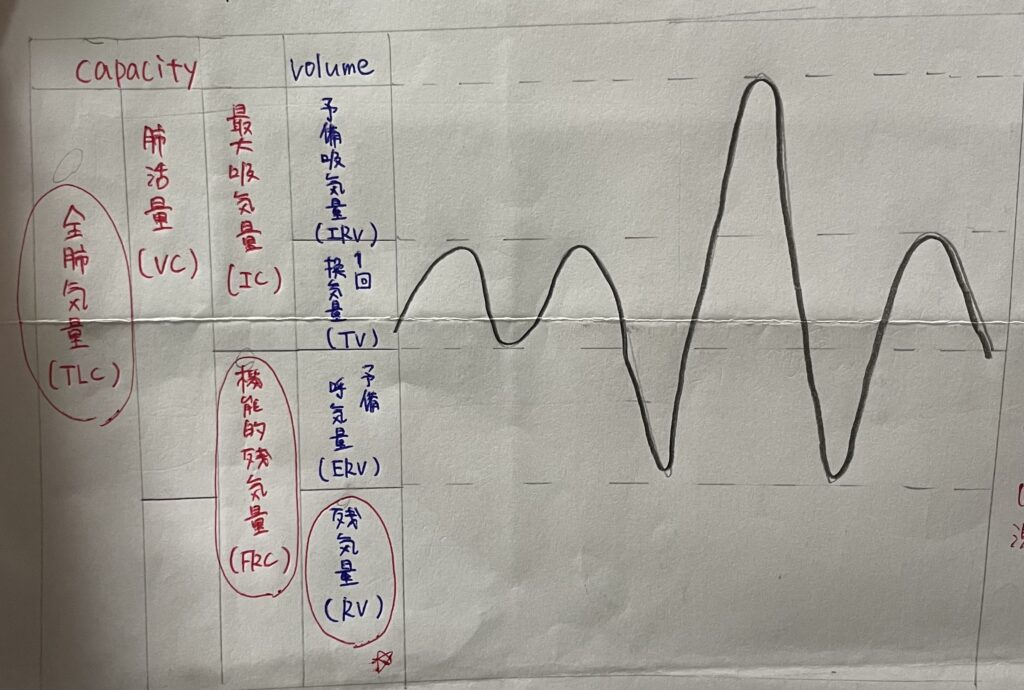 capacity
volume
全肺気量
(TLC)
肺活量
(VC)
最大吸気量
(IC)
機能的残気量
(FRC)
予備吸気量
(IRV)
1回
換気量
(TV)
予備
呼気量
(ERV)
残気量
(RV)